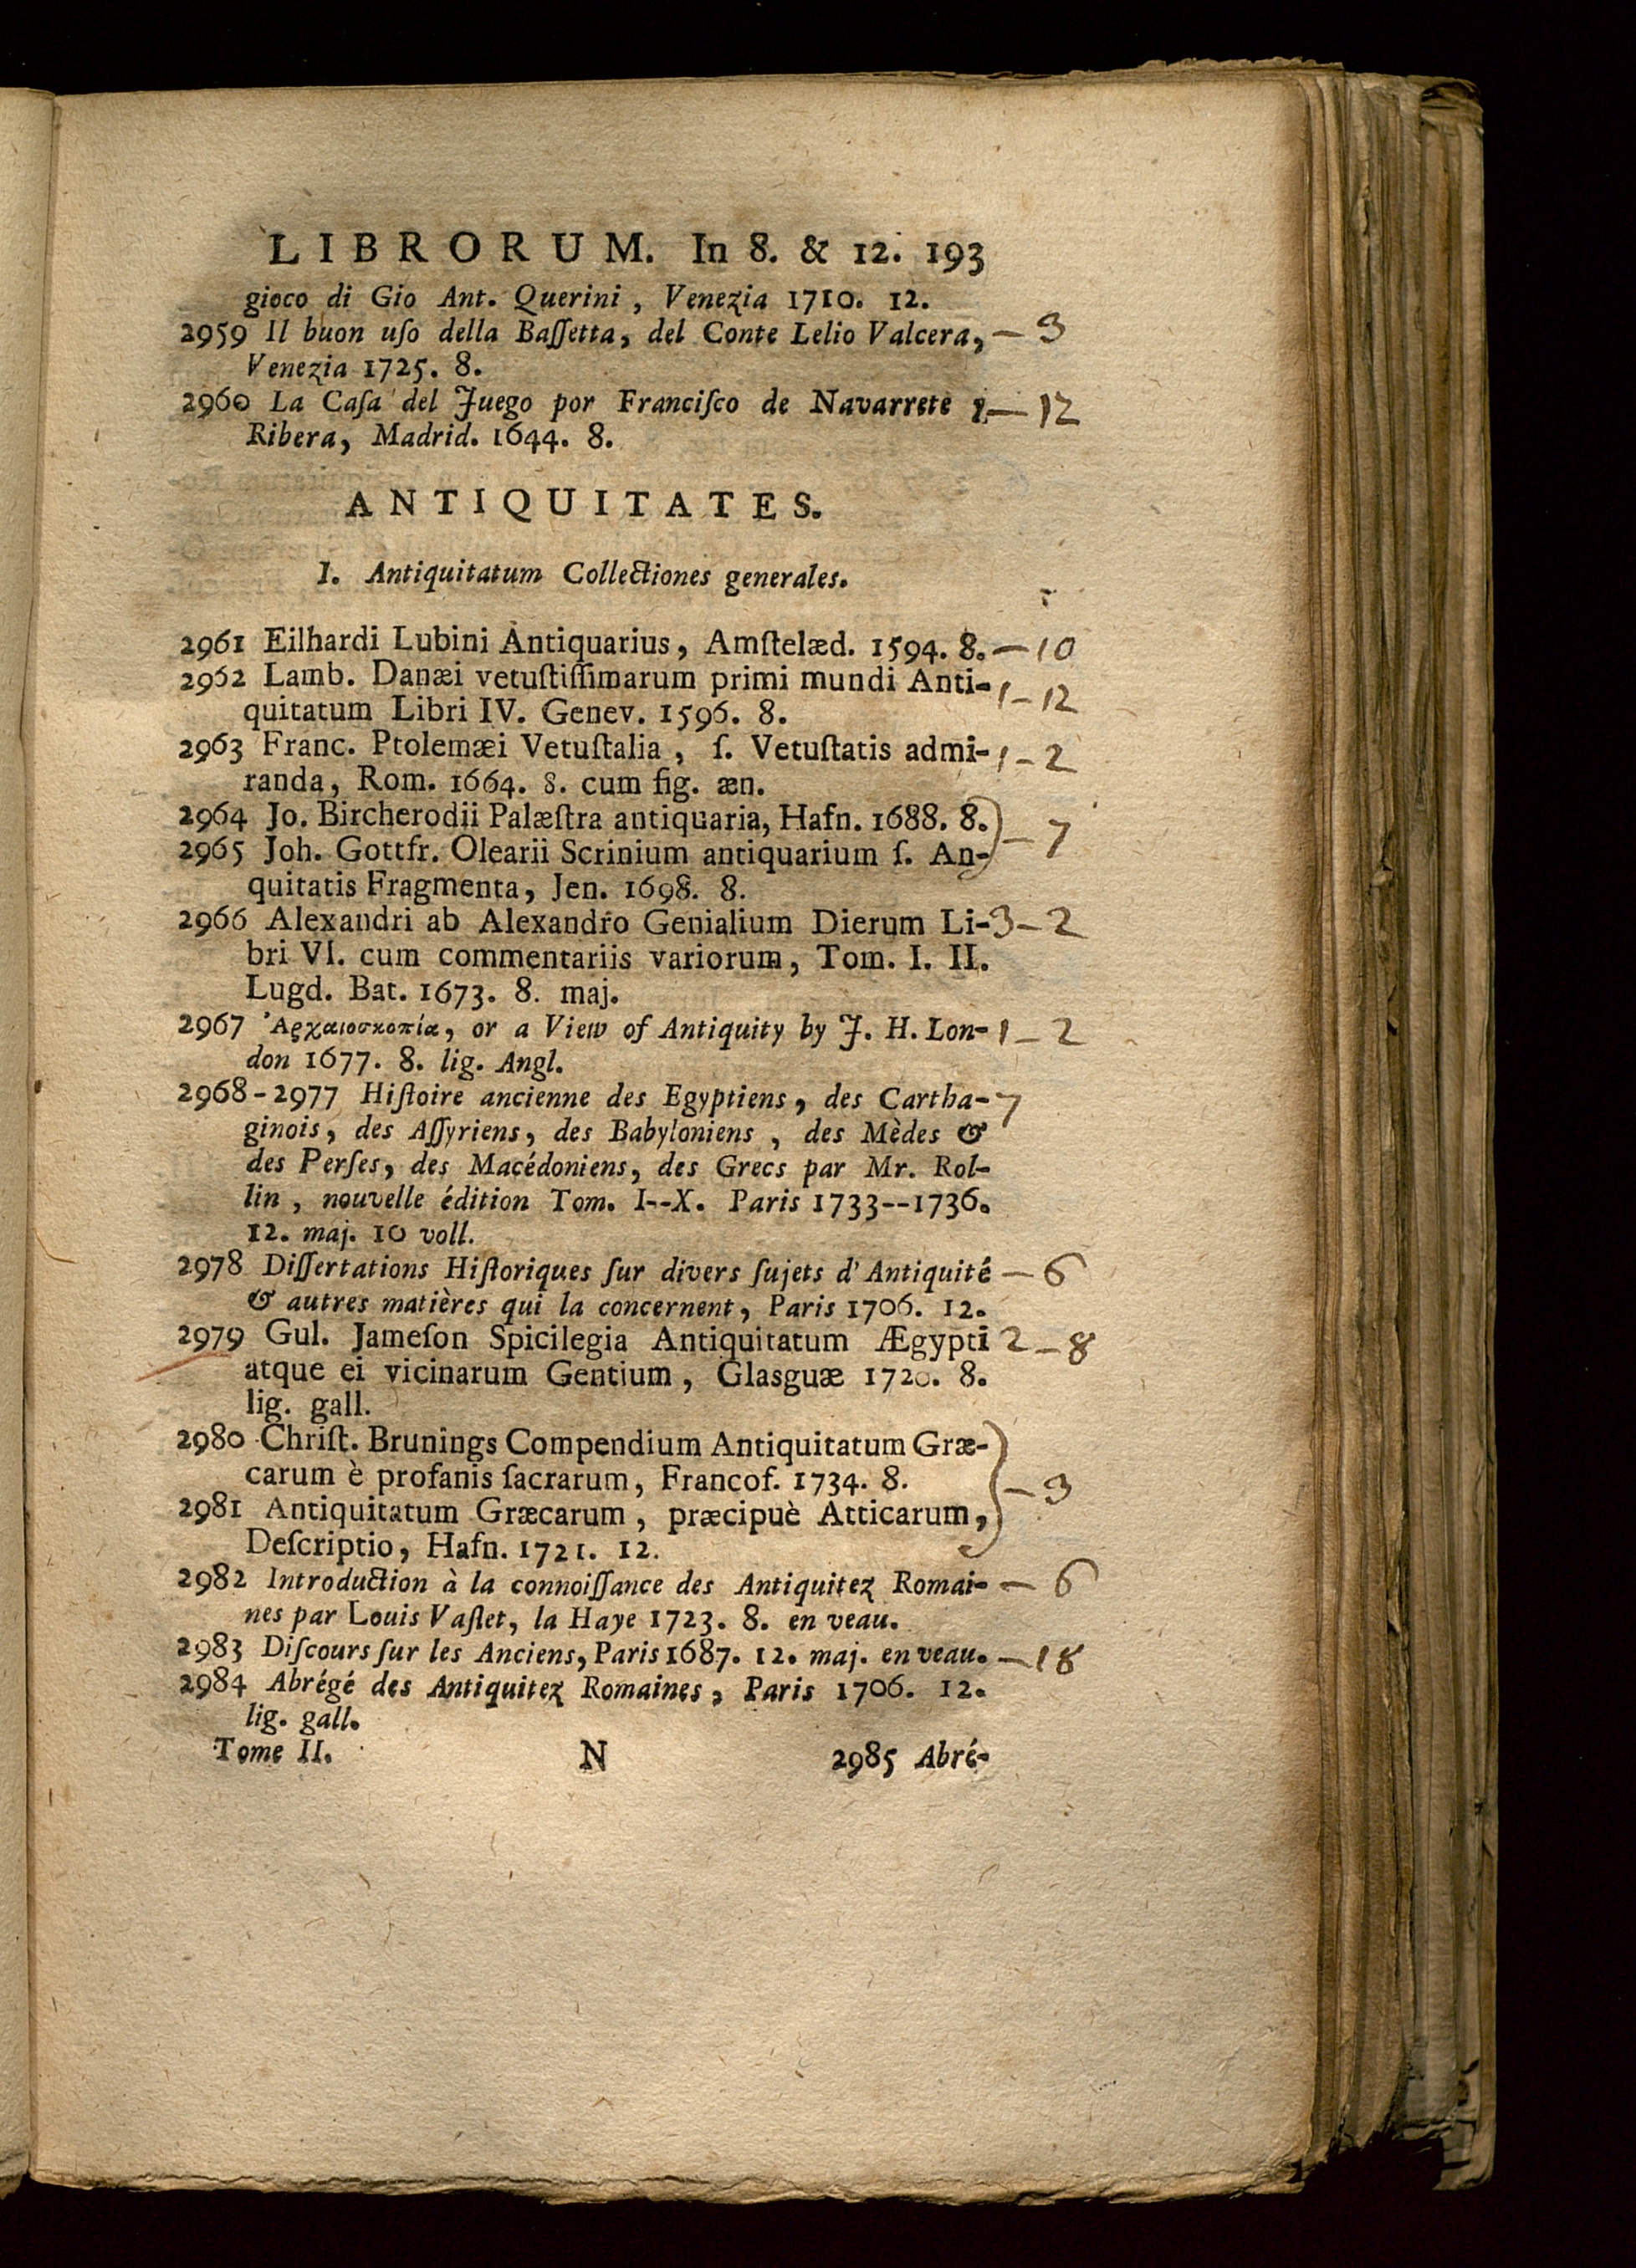 LIBRORUM. In 8. & 12. 193
gioco di Gio Ant. Querini, Venezia 1710. 12.
2959 Il buon uſo della Baſſetta, del Conte Lelio Valcera, — 3
Venezia 1725. 8.
2960 La Caſa del Juego por Franciſco de Navarrete y — 12
Ribera, Madrid. 1644. 8.
ANTIQUITATES.
I. Antiquitatum Collectiones generales.
2961 Eilhardi Lubini Antiquarius, Amſtelæd. 1594. 8. — 10
2962 Lamb. Danæi vetuſtiſſimarum primi mundi Anti- 1 — 12
quitatum Libri IV. Genev. 1596. 8.
2963 Franc. Ptolemæi Vetuſtalia, ſ. Vetuſtatis admi- 1 — 2
randa, Rom. 1664. 8. cum fig. æn.
2964 Jo. Bircherodii Palæſtra antiquaria, Hafn. 1688. 8.) — 7
2965 Joh. Gottfr. Olearii Scrinium antiquarium ſ. An-
quitatis Fragmenta, Jen. 1698. 8.
2966 Alexandri ab Alexandro Genialium Dierum Li- 3 — 2
bri VI. cum commentariis variorum, Tom. I. II.
Lugd. Bat. 1673. 8. maj.
2967 Ἀρχαιοσκοπία, or a View of Antiquity by J. H. Lon- 1 — 2
don 1677. 8. lig. Angl.
2968-2977 Hiſtoire ancienne des Egyptiens, des Cartha- 7
ginois, des Aſſyriens, des Babyloniens, des Mèdes &
des Perſes, des Macédoniens, des Grecs par Mr. Rol-
lin, nouvelle édition Tom. I--X. Paris 1733--1736.
12. maj. 10 voll.
2978 Diſſertations Hiſtoriques ſur divers ſujets d'Antiquité — 6
& autres matières qui la concernent, Paris 1706. 12.
2979 Gul. Jameſon Spicilegia Antiquitatum Ægypti 2 — 8
atque ei vicinarum Gentium, Glasguæ 1720. 8.
lig. gall.
2980 Chriſt. Brunings Compendium Antiquitatum Græ-
carum è profanis ſacrarum, Francof. 1734. 8. ) — 3
2981 Antiquitatum Græcarum, præcipuè Atticarum,
Deſcriptio, Hafn. 1721. 12.
2982 Introduction à la connoiſſance des Antiquitez Romai- — 6
nes par Louis Vaſlet, la Haye 1723. 8. en veau.
2983 Diſcours ſur les Anciens, Paris 1687. 12. maj. en veau. — 18
2984 Abrégé des Antiquitez Romaines, Paris 1706. 12.
lig. gall.
Tome II. N 2985 Abré-